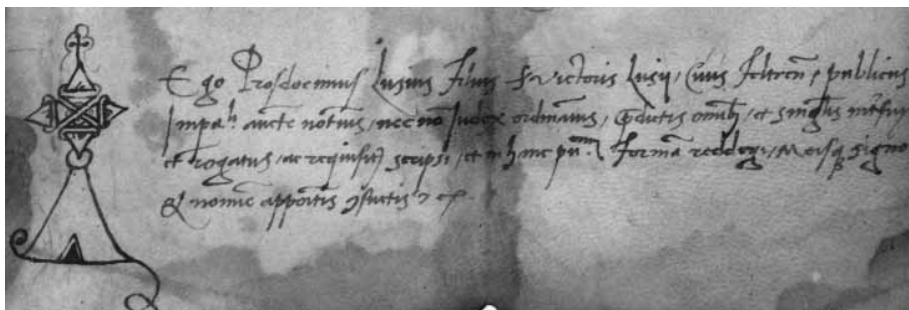 Ego Prosdocimus Lusius Filius S. Victoris Lusij, Civis Feltren̄, publicus
Imp̄ali aucte notarius, nec nō Judex ordinarius, p̄dictis omnib, et singlis interfui
et rogatus, ac requisit9 scripsi, et in hanc pu.cam Formā reddegi, meisq signo
& nomīe appositis 9suetis